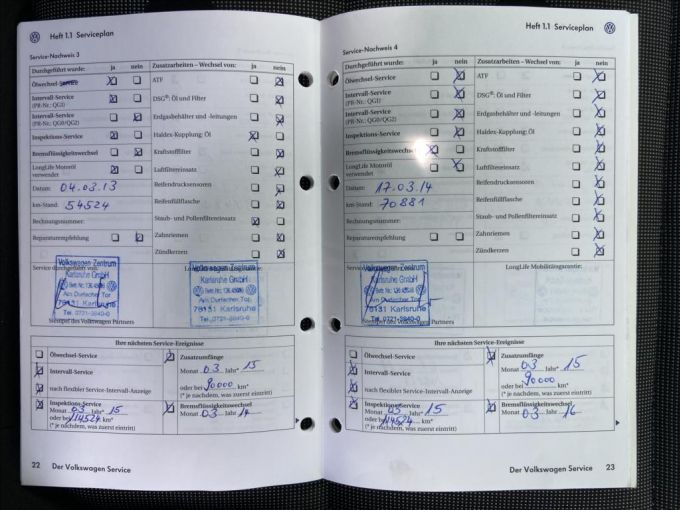 Heft 1.1 Serviceplan
Service-Nachweis 3
Durchgeführt wurde: ja nein Zusatzarbeiten – Wechsel von: ja nein
Ölwechsel-Service ATF
Intervall-Service DSG®: Öl und Filter
(PR-Nr.: QG1)
Intervall-Service Erdgasbehälter und -leitungen
(PR-Nr.: QG0/QG2)
Inspektions-Service Haldex-Kupplung: Öl
Bremsflüssigkeitswechsel Kraftstofffilter
LongLife Motoröl Luftfiltereinsatz
verwendet
Datum: 04.03.13 Reifendrucksensoren
km-Stand: 54524 Reifenfüllflasche
Rechnungsnummer: Staub- und Pollenfiltereinsatz
Reparaturempfehlung Zahnriemen
Zündkerzen
Service durchgeführt von:
Volkswagen Zentrum Volkswagen Zentrum
Karlsruhe GmbH Karlsruhe GmbH
Am Durlacher Tor Am Durlacher Tor
76131 Karlsruhe 76131 Karlsruhe
Tel. 0721-3840-0 Tel. 0721-3840-0
Stempel des Volkswagen Partners
Ihre nächsten Service-Ereignisse
Ölwechsel-Service Zusatzumfänge
Intervall-Service Monat 03 Jahr* 15
oder bei 90000 km*
nach flexibler Service-Intervall-Anzeige (* je nachdem, was zuerst eintritt)
Inspektions-Service Bremsflüssigkeitswechsel
Monat 03 Jahr* 15 Monat 03 Jahr 14
oder bei 114524 km*
(* je nachdem, was zuerst eintritt)
22 Der Volkswagen Service
Heft 1.1 Serviceplan
Service-Nachweis 4
Durchgeführt wurde: ja nein Zusatzarbeiten – Wechsel von: ja nein
Ölwechsel-Service ATF
Intervall-Service DSG®: Öl und Filter
(PR-Nr.: QG1)
Intervall-Service Erdgasbehälter und -leitungen
(PR-Nr.: QG0/QG2)
Inspektions-Service Haldex-Kupplung: Öl
Bremsflüssigkeitswechsel Kraftstofffilter
LongLife Motoröl Luftfiltereinsatz
verwendet
Datum: 17.03.14 Reifendrucksensoren
km-Stand: 70881 Reifenfüllflasche
Rechnungsnummer: Staub- und Pollenfiltereinsatz
Reparaturempfehlung Zahnriemen
Zündkerzen
LongLife Mobilitätsgarantie:
Volkswagen Zentrum
Karlsruhe GmbH
Am Durlacher Tor
76131 Karlsruhe
Tel. 0721-3840-0
Stempel des Volkswagen Partners
Ihre nächsten Service-Ereignisse
Ölwechsel-Service Zusatzumfänge
Intervall-Service Monat 03 Jahr* 15
oder bei 90000 km*
nach flexibler Service-Intervall-Anzeige (* je nachdem, was zuerst eintritt)
Inspektions-Service Bremsflüssigkeitswechsel
Monat 03 Jahr* 15 Monat 03 Jahr 16
oder bei 114524 km*
(* je nachdem, was zuerst eintritt)
Der Volkswagen Service 23